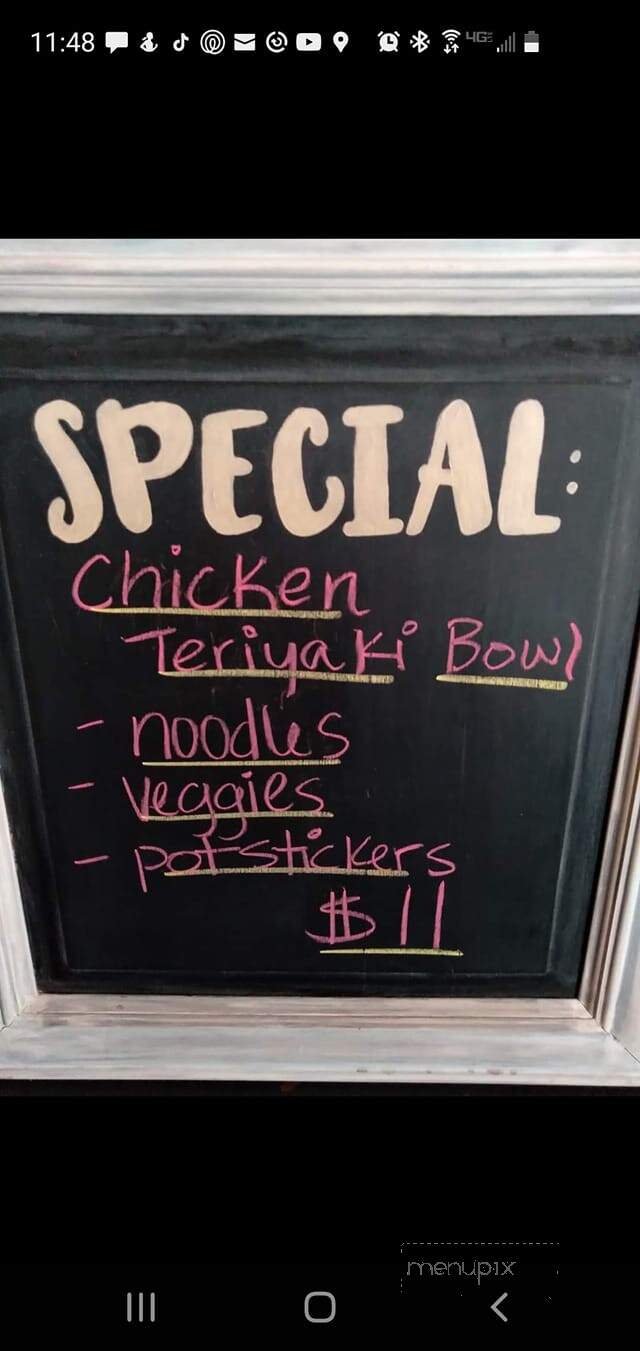 11:48 4GE
SPECIAL:
Chicken
Teriyaki Bowl
- noodles
- veggies
- potstickers
$11
menupix